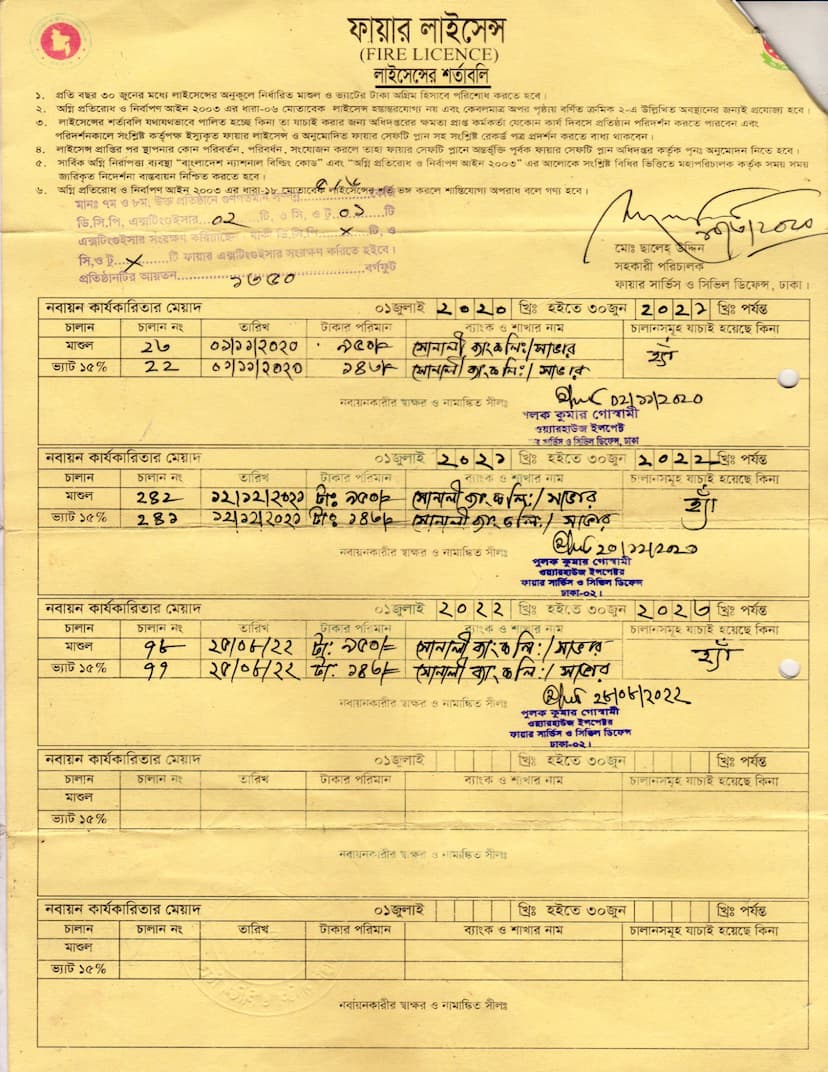 ফায়ার লাইসেন্স
(FIRE LICENCE)
লাইসেন্সের শর্তাবলি
১. প্রতি বছর ৩০ জুনের মধ্যে লাইসেন্সের অনুকূলে নির্ধারিত মাশুল ও ভ্যাটের টাকা অগ্রিম হিসাবে পরিশোধ করতে হবে।
২. অগ্নি প্রতিরোধ ও নির্বাপণ আইন ২০০৩ এর ধারা-০৬ মোতাবেক লাইসেন্স হস্তান্তরযোগ্য নয় এবং কেবলমাত্র অপর পৃষ্ঠায় বর্ণিত ক্রমিক ২-এ উল্লিখিত অবস্থানের জন্যই প্রযোজ্য হবে।
৩. লাইসেন্সের শর্তাবলি যথাযথভাবে পালিত হচ্ছে কিনা তা যাচাই করার জন্য অধিদপ্তরের ক্ষমতা প্রাপ্ত কর্মকর্তা যেকোন কার্য দিবসে প্রতিষ্ঠান পরিদর্শন করতে পারবেন এবং
পরিদর্শনকালে সংশ্লিষ্ট কর্তৃপক্ষ ইস্যুকৃত ফায়ার লাইসেন্স ও অনুমোদিত ফায়ার সেফটি প্লান সহ সংশ্লিষ্ট রেকর্ড পত্র প্রদর্শন করতে বাধ্য থাকবেন।
৪. লাইসেন্স প্রাপ্তির পর স্থাপনার কোন পরিবর্তন, পরিবর্ধন, সংযোজন করলে তাহা ফায়ার সেফটি প্লানে অন্তর্ভূক্তি পূর্বক ফায়ার সেফটি প্লান অধিদপ্তর কর্তৃক পূনঃ অনুমোদন নিতে হবে।
৫. সার্বিক অগ্নি নিরাপত্তা ব্যবস্থা "বাংলাদেশ ন্যাশনাল বিল্ডিং কোড" এবং "অগ্নি প্রতিরোধ ও নির্বাপণ আইন ২০০৩" এর আলোকে সংশ্লিষ্ট বিধির ভিত্তিতে মহাপরিচালক কর্তৃক সময় সময়
জারিকৃত নিদের্শনা বাস্তবায়ন নিশ্চিত করতে হবে।
৬. অগ্নি প্রতিরোধ ও নির্বাপণ আইন ২০০৩ এর ধারা-১৮ মোতাবেক লাইসেন্সের শর্ত ভঙ্গ করলে শাস্তিযোগ্য অপরাধ বলে গণ্য হবে।
মানঃ ৭ম ও ৮ম. উক্ত প্রতিষ্ঠানে গুণগতমান সম্পন্ন
ডি.সি.পি, এক্সটিংগুইসার ০২ টি, ও সি, ও টু ০১ টি
এক্সটিংগুইসার সংরক্ষণ করিয়াছে বাকী ডি.সি.পি x টি, ও
সি,ও টু x টি ফায়ার এক্সটিংগুইসার সংরক্ষণ করিতে হইবে।
প্রতিষ্ঠানটির আয়তন ১৬৫০ বর্গফুট
মোঃ ছালেহ উদ্দিন
সহকারী পরিচালক
ফায়ার সার্ভিস ও সিভিল ডিফেন্স, ঢাকা।
নবায়ন কার্যকারিতার মেয়াদ ০১জুলাই ২০২০ খ্রিঃ হইতে ৩০জুন ২০২১ খ্রিঃ পর্যন্ত
চালান চালান নং তারিখ টাকার পরিমান ব্যাংক ও শাখার নাম চালানসমূহ যাচাই হয়েছে কিনা
মাশুল ২৩ ০১/১১/২০২০ ৯৫০/- সোনালী ব্যাংক লিঃ/সাভার হ্যাঁ
ভ্যাট ১৫% ২২ ০১/১১/২০২০ ১৪৩/- সোনালী ব্যাংক লিঃ/সাভার
০২/১১/২০২০
নবায়নকারীর স্বাক্ষর ও নামাঙ্কিত সীলঃ
পুলক কুমার গোস্বামী
ওয়্যারহাউজ ইন্সপেক্ট
র সার্ভিস ও সিভিল ডিফেন্স, ঢাকা
নবায়ন কার্যকারিতার মেয়াদ ০১জুলাই ২০২১ খ্রিঃ হইতে ৩০জুন ২০২২ খ্রিঃ পর্যন্ত
চালান চালান নং তারিখ টাকার পরিমান ব্যাংক ও শাখার নাম চালানসমূহ যাচাই হয়েছে কিনা
মাশুল ২৪২ ১২/১২/২০২১ টাঃ ৯৫০/- সোনালী ব্যাংক লিঃ/সাভার হ্যাঁ
ভ্যাট ১৫% ২৪১ ১২/১২/২০২১ টাঃ ১৪৩/- সোনালী ব্যাংক লিঃ/সাভার
নবায়নকারীর স্বাক্ষর ও নামাঙ্কিত সীলঃ
পুলক কুমার গোস্বামী
ওয়্যারহাউজ ইন্সপেক্টর
ফায়ার সার্ভিস ও সিভিল ডিফেন্স
ঢাকা-০২।
নবায়ন কার্যকারিতার মেয়াদ ০১জুলাই ২০২২ খ্রিঃ হইতে ৩০জুন ২০২৩ খ্রিঃ পর্যন্ত
চালান চালান নং তারিখ টাকার পরিমান ব্যাংক ও শাখার নাম চালানসমূহ যাচাই হয়েছে কিনা
মাশুল ৭৮ ২৫/০৮/২২ টাঃ ৯৫০/- সোনালী ব্যাংক লিঃ/সাভার হ্যাঁ
ভ্যাট ১৫% ৭৭ ২৫/০৮/২২ টাঃ ১৪৩/- সোনালী ব্যাংক লিঃ/সাভার
২৮/০৮/২০২২
নবায়নকারীর স্বাক্ষর ও নামাঙ্কিত সীলঃ
পুলক কুমার গোস্বামী
ওয়্যারহাউজ ইন্সপেক্টর
ফায়ার সার্ভিস ও সিভিল ডিফেন্স
ঢাকা-০২।
নবায়ন কার্যকারিতার মেয়াদ ০১জুলাই খ্রিঃ হইতে ৩০জুন খ্রিঃ পর্যন্ত
চালান চালান নং তারিখ টাকার পরিমান ব্যাংক ও শাখার নাম চালানসমূহ যাচাই হয়েছে কিনা
মাশুল
ভ্যাট ১৫%
নবায়নকারীর স্বাক্ষর ও নামাঙ্কিত সীলঃ
নবায়ন কার্যকারিতার মেয়াদ ০১জুলাই খ্রিঃ হইতে ৩০জুন খ্রিঃ পর্যন্ত
চালান চালান নং তারিখ টাকার পরিমান ব্যাংক ও শাখার নাম চালানসমূহ যাচাই হয়েছে কিনা
মাশুল
ভ্যাট ১৫%
নবায়নকারীর স্বাক্ষর ও নামাঙ্কিত সীলঃ